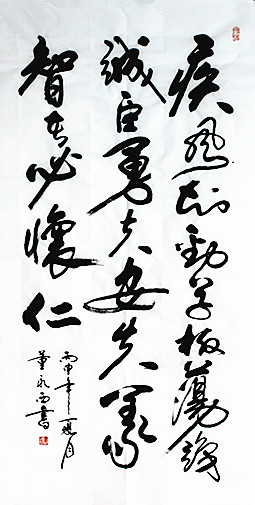 疾風知勁草板蕩識
誠臣勇夫安知義
智者必懷仁
丙申年夏月
董永西書